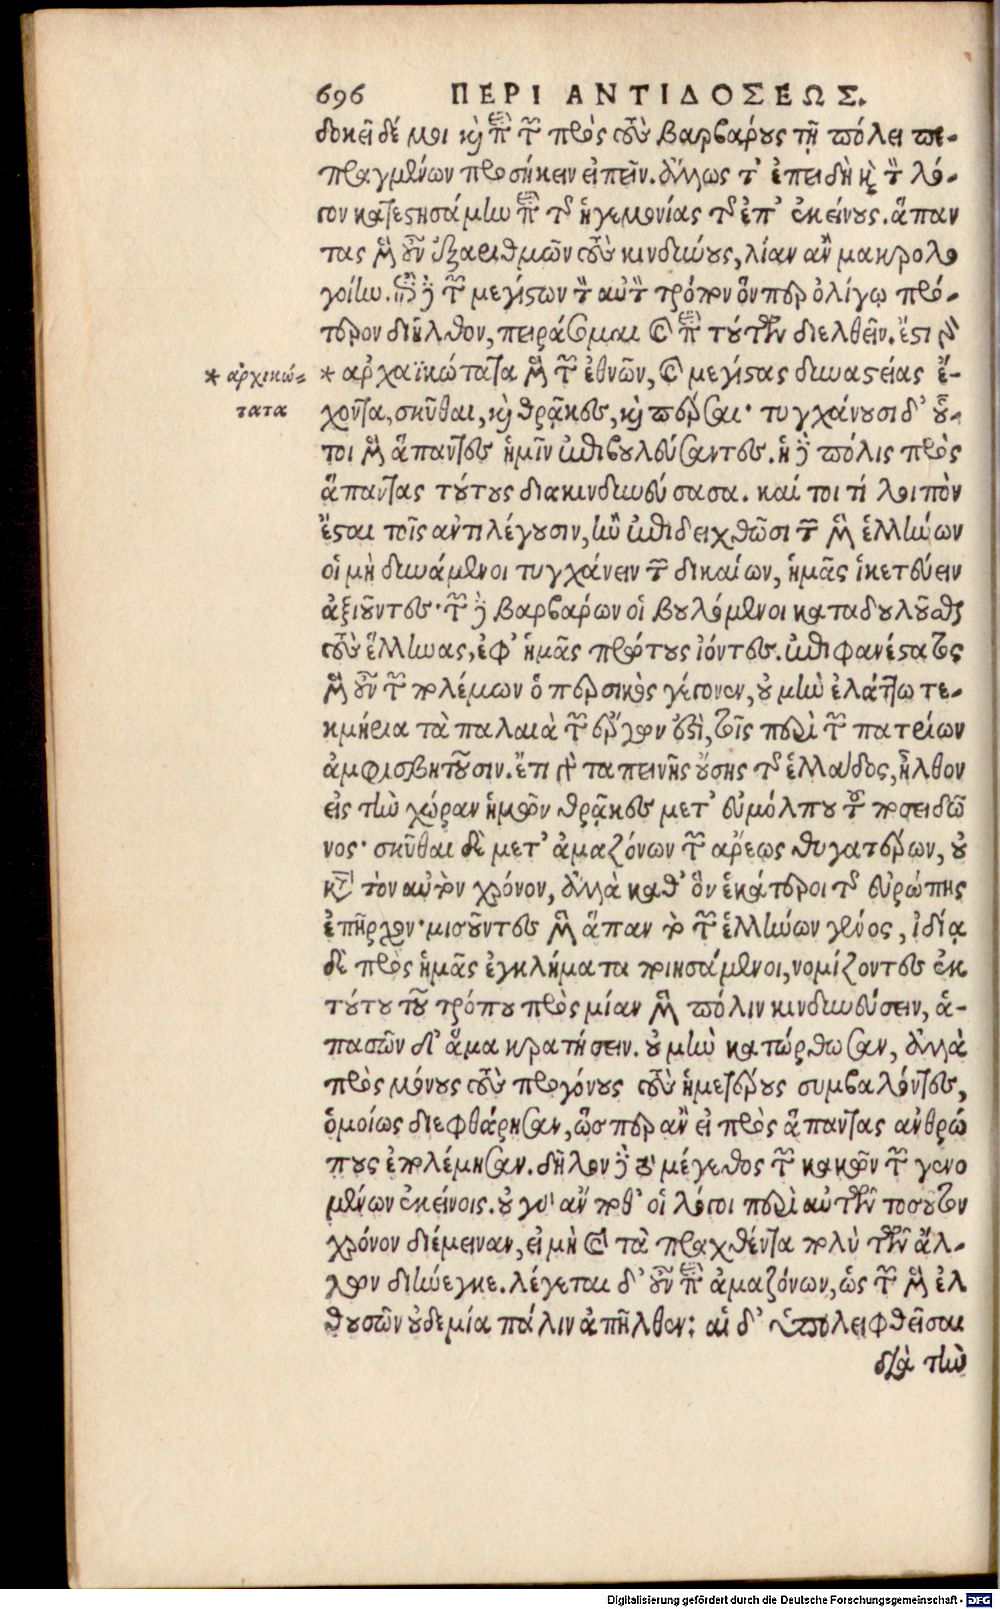 696 ΠΕΡΙ ΑΝΤΙΔΟΣΕΩΣ.
δοκεῖ δέ μοι καὶ περὶ τῶν πρὸς τοὺς βαρβάρους τῇ πόλει πε-
πραγμένων προσήκειν εἰπεῖν. ἄλλως τ' ἐπειδὴ καὶ τὸν λό-
γον κατεστησάμην περὶ τῆς ἡγεμονίας τῆς ἐπ' ἐκείνους. ἅπαν
τας μὲν οὖν ἐξαριθμῶν τοὺς κινδύνους, λίαν ἂν μακρολο
γοίην. ἐπὶ δὲ τῶν μεγίστων τὸν αὐτὸν τρόπον ὅνπερ ὀλίγῳ πρό-
τερον διῆλθον, πειράσομαι καὶ περὶ τούτων διελθεῖν. ἔστι γὰρ
* ἀρχαϊκώτατα μὲν τῶν ἐθνῶν, καὶ μεγίστας δυναστείας ἔ-
χοντα, σκῦθαι, καὶ θρᾷκες, καὶ πέρσαι· τυγχάνουσι δ' οὗ-
τοι μὲν ἅπαντες ἡμῖν ἐπιβουλεύσαντες. ἡ δὲ πόλις πρὸς
ἅπαντας τούτους διακινδυνεύσασα. καί τοι τί λοιπὸν
ἔσται τοῖς ἀντιλέγουσιν, ἢν ἐπιδειχθῶσι τῶν μὲν ἑλλήνων
οἱ μὴ δυνάμενοι τυγχάνειν τῶν δικαίων, ἡμᾶς ἱκετεύειν
ἀξιοῦντες· τῶν δὲ βαρβάρων οἱ βουλόμενοι καταδουλοῦσθαι
τοὺς ἕλληνας, ἐφ' ἡμᾶς πρώτους ἰόντες. ἐπιφανέστατος
μὲν οὖν τῶν πολέμων ὁ περσικὸς γέγονεν, οὐ μὴν ἐλάττω τε-
κμήρια τὰ παλαιὰ τῶν ἔργων ἐστὶ, τοῖς περὶ τῶν πατρίων
ἀμφισβητοῦσιν. ἔτι γὰρ ταπεινῆς οὔσης τῆς ἑλλάδος, ἦλθον
εἰς τὴν χώραν ἡμῶν θρᾷκες μετ' εὐμόλπου τοῦ ποσειδῶ
νος· σκῦθαι δὲ μετ' ἀμαζόνων τῶν ἄρεως θυγατέρων, οὐ
κατὰ τὸν αὐτὸν χρόνον, ἀλλὰ καθ' ὃν ἑκάτεροι τῆς εὐρώπης
ἐπῆρχον· μισοῦντες μὲν ἅπαν τὸ τῶν ἑλλήνων γένος, ἰδίᾳ
δὲ πρὸς ἡμᾶς ἐγκλήματα ποιησάμενοι, νομίζοντες ἐκ
τούτου τοῦ τρόπου πρὸς μίαν μὲν πόλιν κινδυνεύσειν, ἁ-
πασῶν δ' ἅμα κρατήσειν. οὐ μὴν κατώρθωσαν, ἀλλὰ
πρὸς μόνους τοὺς προγόνους τοὺς ἡμετέρους συμβαλόντες,
ὁμοίως διεφθάρησαν, ὥσπερ ἂν εἰ πρὸς ἅπαντας ἀνθρώ
πους ἐπολέμησαν. δῆλον δὲ τὸ μέγεθος τῶν κακῶν τῶν γενο
μένων ἐκείνοις. οὐ γὰρ ἄν ποθ' οἱ λόγοι περὶ αὐτῶν τοσοῦτον
χρόνον διέμειναν, εἰ μὴ καὶ τὰ πραχθέντα πολὺ τῶν ἄλ-
λων διήνεγκε. λέγεται δ' οὖν περὶ ἀμαζόνων, ὡς τῶν μὲν ἐλ
θουσῶν οὐδεμία πάλιν ἀπῆλθεν: αἱ δ' ὑπολειφθεῖσαι
διὰ τὴν
* ἀρχικώ-
τατα
Digitalisierung gefördert durch die Deutsche Forschungsgemeinschaft - DFG